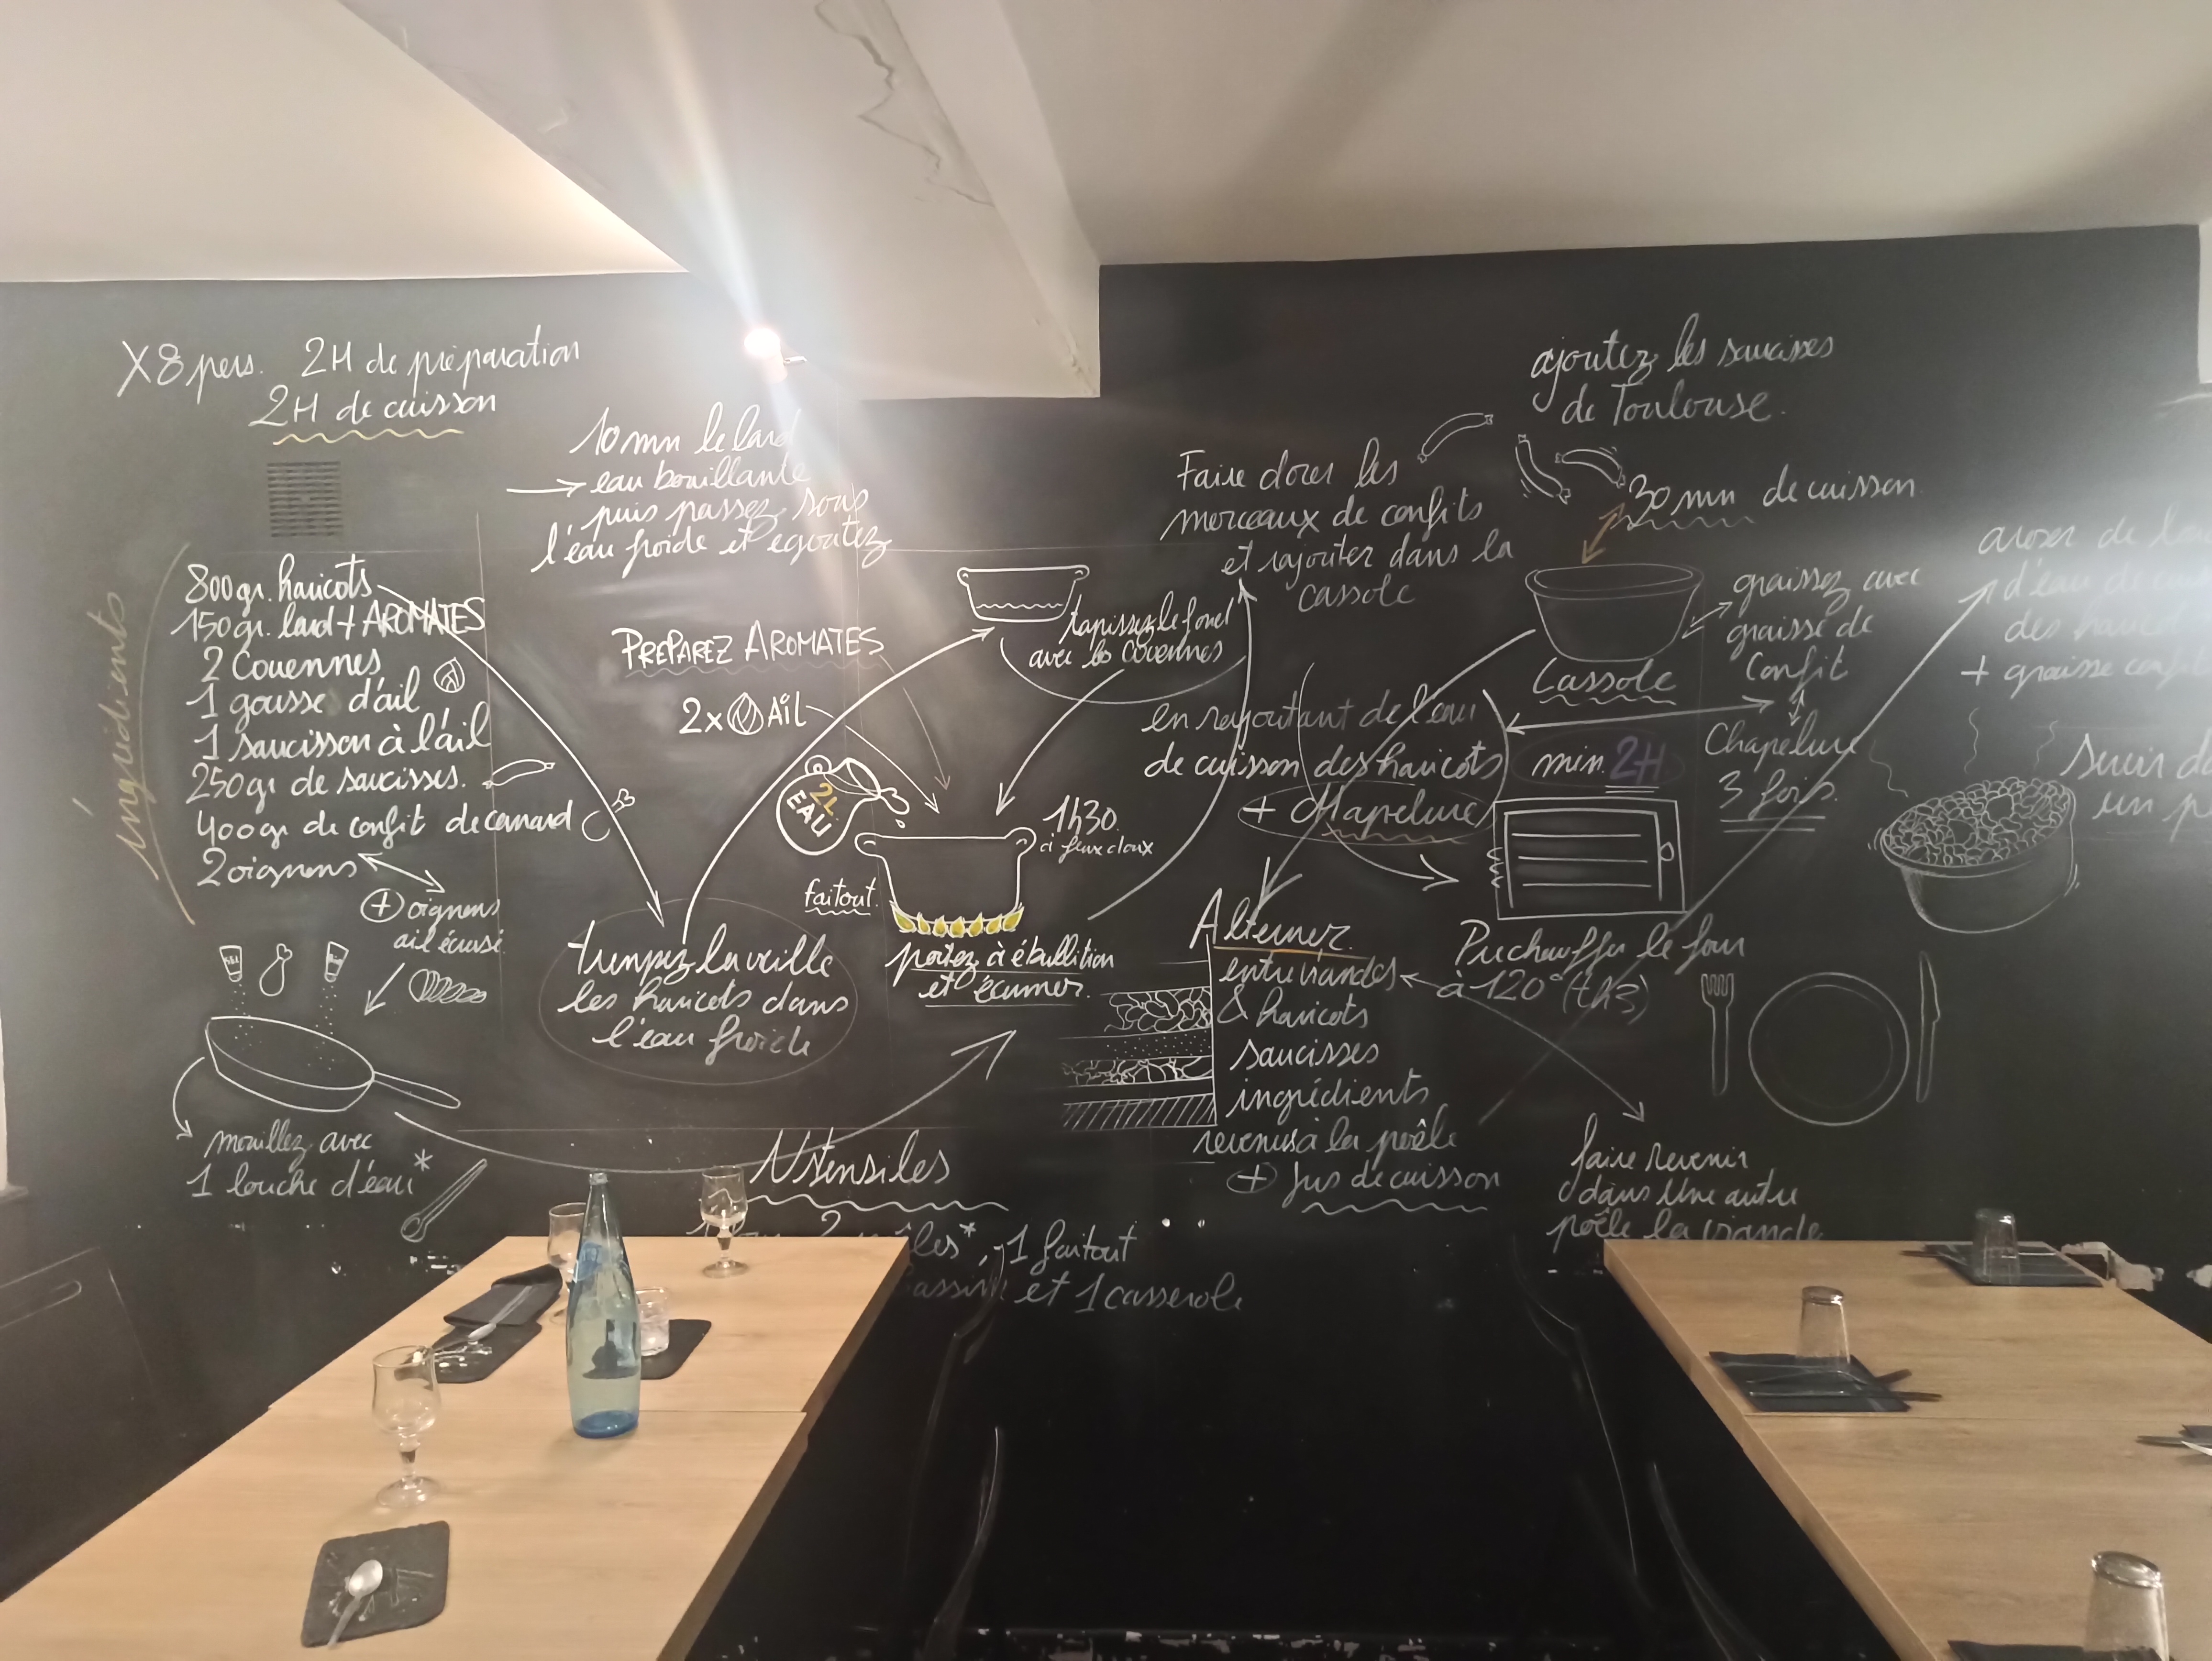 X8 pers. 2H de préparation
2H de cuisson
ingrédients
800gr. haricots
150gr. lard + AROMATES
2 Couennes
1 gousse d'ail
1 saucisson à l'ail
250gr de saucisses.
400gr de confit de canard
2 oignons
+ oignons
ail écrasé
mouillez avec
1 louche d'eau*
10 mn le lard
eau bouillante
puis passez sous
l'eau froide et égoutez
PREPAREZ AROMATES
2x AiL
2L
EAU
trempez la veille
les haricots dans
l'eau froide
tapissez le fond
avec les couennes
1h30
à feux doux
faitout.
portez à ébullition
et écumer.
Ustensiles
2
les*, 1 faitout
et 1 casserole
Faire dorer les
morceaux de confits
et rajouter dans la
cassole
en rajoutant de l'eau
de cuisson des haricots
+ Chapelure
Alterner
entre viandes
& haricots
saucisses
ingrédients
revenus à la poêle
+ Jus de cuisson
ajoutez les saucisses
de Toulouse.
30 mn de cuisson
Cassole
graissez avec
graisse de
Confit
Chapelure
3 fois.
min. 2H
Prechauffer le four
à 120° (th3)
faire revenir
dans une autre
poêle la viande
aroser de
d'eau de
des
+ graisse
un